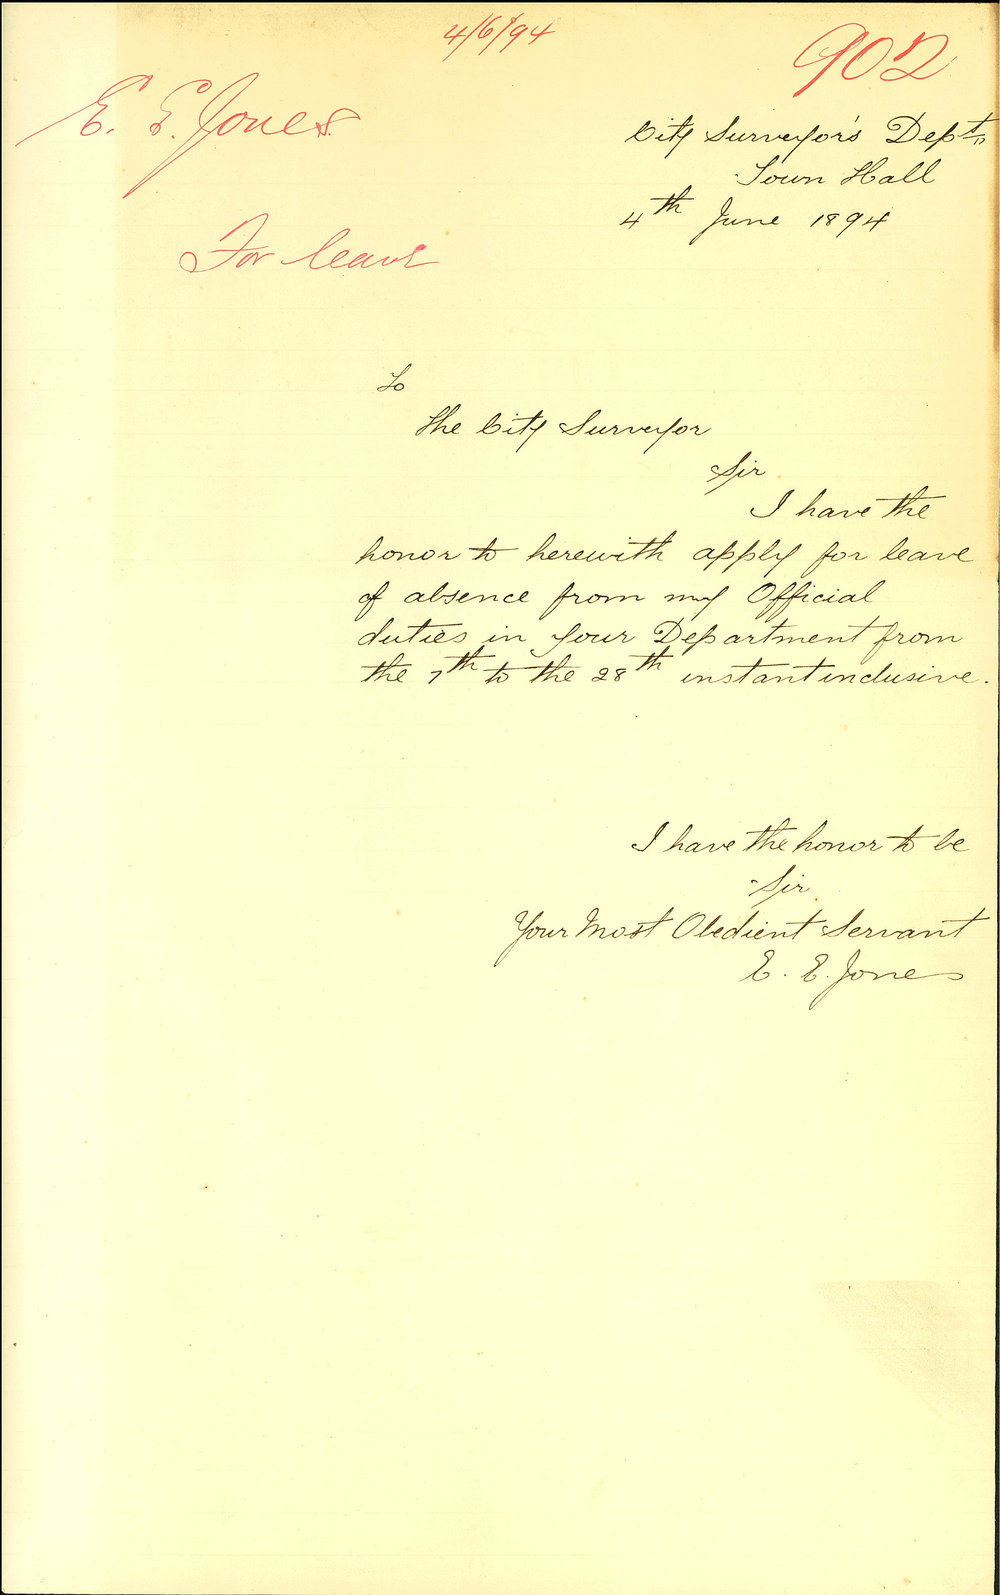 4/6/94
902
E. E. Jones
For leave
City Surveyor's Dept.
Town Hall
4th June 1894
To
The City Surveyor
Sir
I have the
honor to herewith apply for leave
of absence from my Official
duties in your Department from
the 7th to the 28th instant inclusive.
I have the honor to be
Sir
Your Most Obedient Servant
E. E. Jones